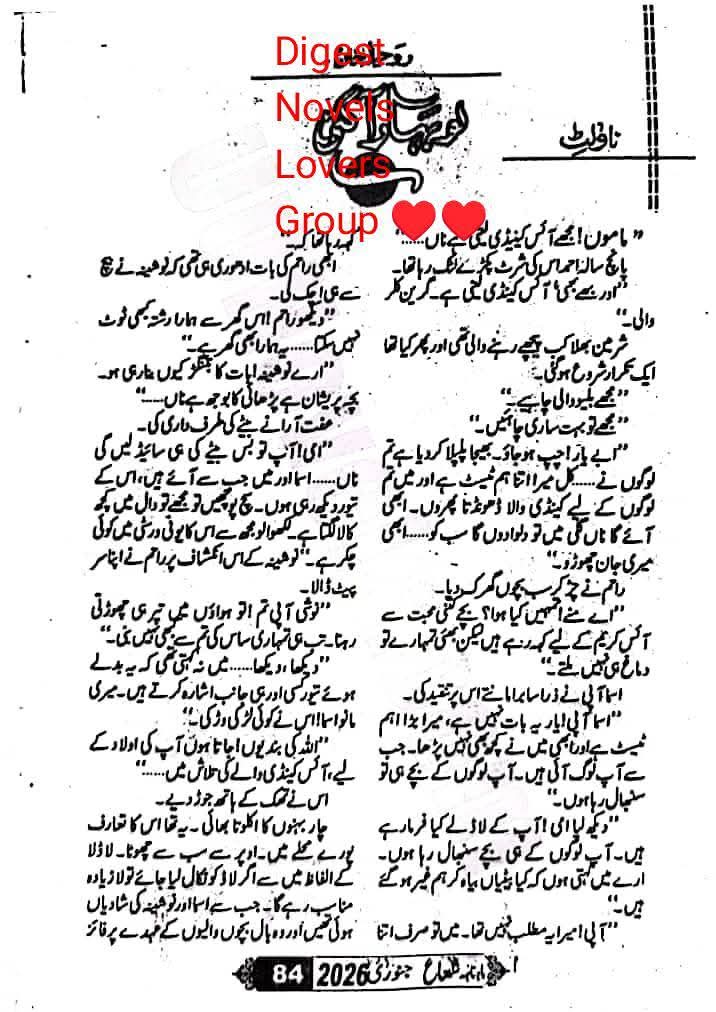 Digest
Novels
Lovers
Group ❤️❤️
ناولٹ
"ماموں! مجھے آئس کینڈی لینی ہے ناں......"
پانچ سالہ احمر اس کی شرٹ پکڑے لٹک رہا تھا۔
"اور بھے بھی' آئس کینڈی لینی ہے۔ گرین کلر
والی۔"
شرمین بھلا کب پیچھے رہنے والی تھی اور پھر کیا تھا
ایک تکرار شروع ہوگئی۔
"مجھے بلیو والی چاہیے۔"
"مجھے تو بہت ساری چاہئیں۔"
"ابے یار! چپ ہوجاؤ۔ بھیجا پلپلا کردیا ہے تم
لوگوں نے......کل میرا اتنا اہم ٹیسٹ ہے اور میں تم
لوگوں کے لیے کینڈی والا ڈھونڈتا پھروں۔ ابھی
آئے گا ناں گلی میں تو دلوا دوں گا سب کو......ابھی
میری جان چھوڑو۔"
راحم نے چڑ کر سب بچوں گھرک دیا۔
"اے منے! تمہیں کیا ہوا؟ بچے کتنی محبت سے
آئس کریم کے لیے کہہ رہے ہیں لیکن بھئی تمہارے تو
دماغ ہی نہیں ملتے۔"
اسما آپی نے ذرا سا برا مانتے اس پر تنقید کی۔
"اسما آپی! یار یہ بات نہیں ہے، میرا بڑا اہم
ٹیسٹ ہے اور ابھی میں نے کچھ بھی نہیں پڑھا۔ جب
سے آپ لوگ آئی ہیں۔ آپ لوگوں کے بچے ہی تو
سنبھال رہا ہوں۔"
"دیکھ لیا امی! آپ کے لاڈلے کیا فرما رہے
ہیں۔ آپ لوگوں کے ہی بچے سنبھال رہا ہوں۔
ارے میں کہتی ہوں کہ کیا بیٹیاں بیاہ کر ہم غیر ہوگئے
ہیں۔"
"آپی! میرا یہ مطلب نہیں تھا۔ میں تو صرف اتنا
کہہ رہا تھا کہ۔"
ابھی راحم کی بات ادھوری ہی تھی کہ نوشینہ نے بیچ
سے ہی اچک لی۔
"دیکھو راحم! اس گھر سے ہمارا رشتہ کبھی ٹوٹ
نہیں سکتا......یہ ہمارا بھی گھر ہے۔"
"ارے نوشینہ! بات کا بتنگڑ کیوں بنا رہی ہو۔
بچہ پریشان ہے پڑھائی کا بوجھ ہے ناں......"
عفت آرا نے بیٹے کی طرف داری کی۔
"امی! آپ تو بس بیٹے کی ہی سائیڈ لیں گی
ناں......اسما اور میں جب سے آئے ہیں، اس کے
تیور دیکھ رہی ہوں۔ سچ پوچھیں تو مجھے تو دال میں کچھ
کالا لگتا ہے۔ لکھوا لو مجھ سے اس کا یونی ورسٹی میں کوئی
چکر ہے۔" نوشینہ کے اس انکشاف پر راحم نے اپنا سر
پیٹ ڈالا۔
"نوشی آپی تم! تو ہواؤں میں تیر ہی چھوڑتی
رہنا۔ تب ہی تمہاری ساس کی تم سے بھی نہیں بنی۔"
"دیکھا، دیکھا......میں نہ کہتی تھی کہ یہ بدلے
ہوئے تیور کسی اور ہی جانب اشارہ کرتے ہیں۔ میری
مانو اسما! اس نے کوئی لڑکی وڑکی۔"
"اللہ کی بندیوں! جاتا ہوں آپ کی اولاد کے
لیے، آئس کینڈی والے کی تلاش میں......"
اس نے تھک کے ہاتھ جوڑ دیے۔
چار بہنوں کا اکلوتا بھائی۔ یہ تھا اس کا تعارف
پورے محلے میں۔ اوپر سے سب سے چھوٹا۔ لاڈلا
کے الفاظ میں سے اگر لاڈ کو نکال لیا جائے تو لا زیادہ
مناسب رہے گا۔ جب سے اسما اور نوشینہ کی شادیاں
ہوئی تھیں اور وہ بال بچوں والیوں کے عہدے پر فائز
ماہنامہ شعاع جنوری 2026 84